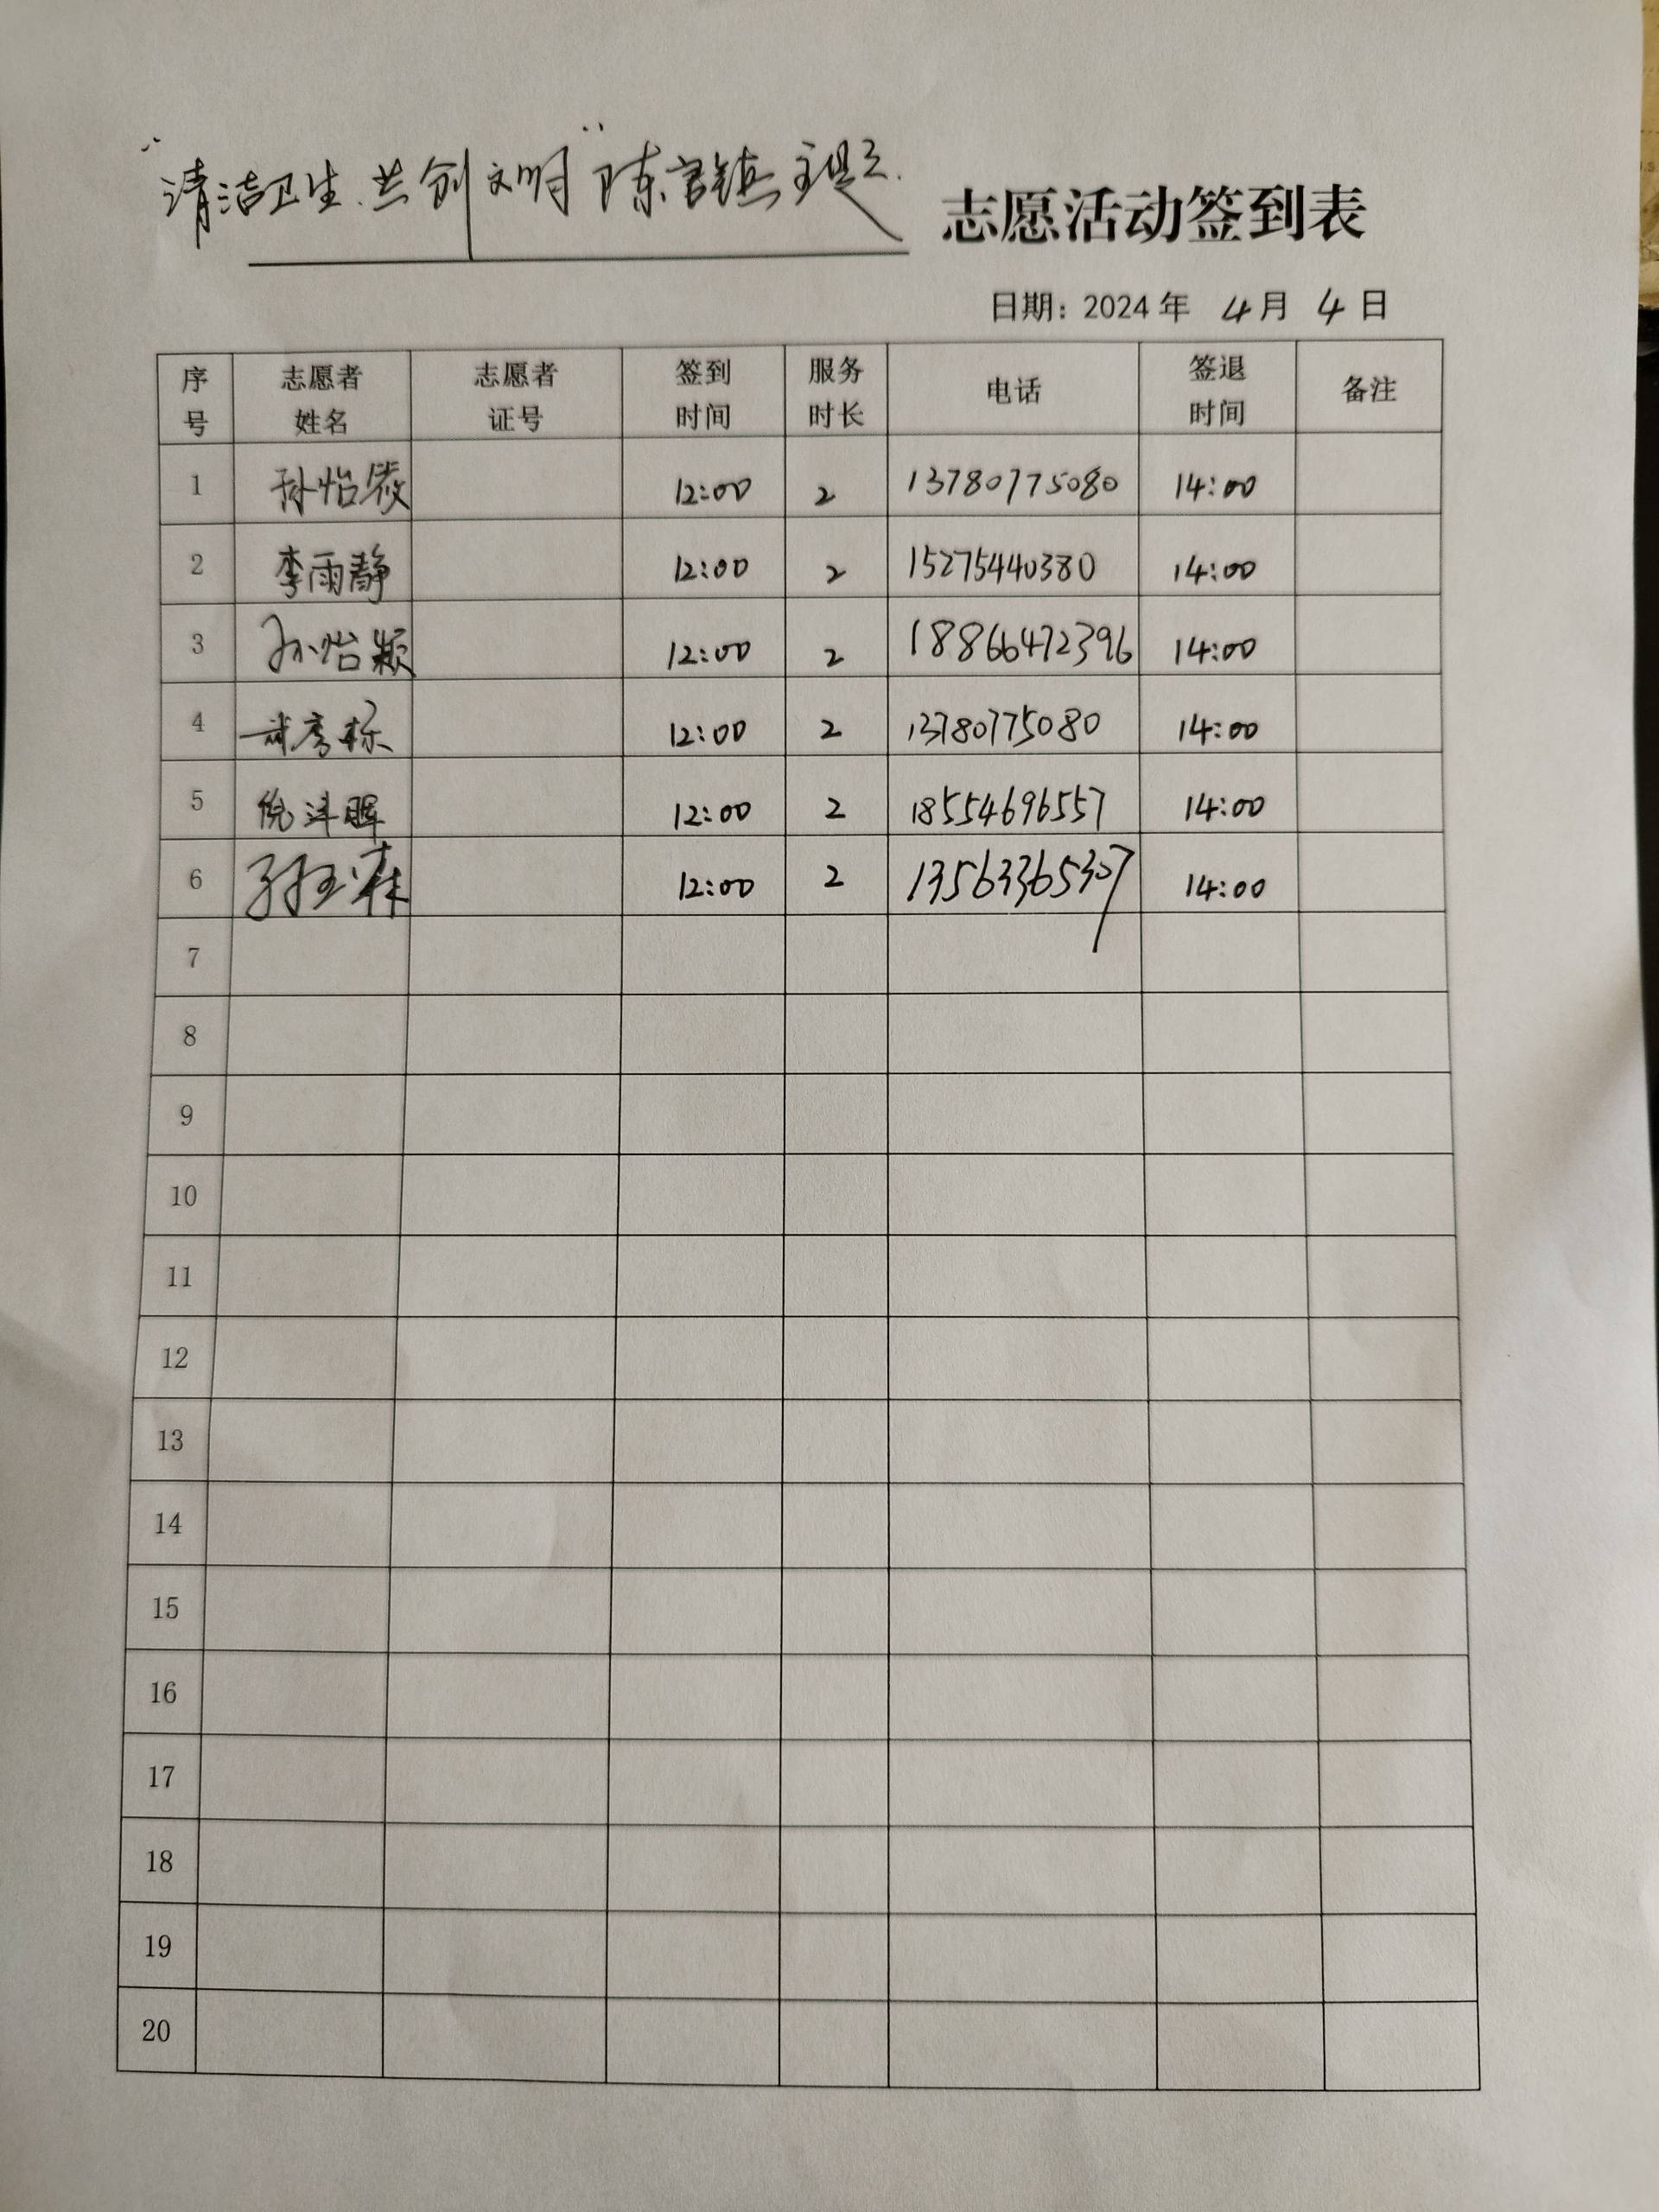 "清洁卫生.共创文明"陈官镇主题 志愿活动签到表
日期：2024 年 4 月 4 日
序号 志愿者姓名 志愿者证号 签到时间 服务时长 电话 签退时间 备注
1 孙怡筱 12:00 2 13780775080 14:00
2 李雨静 12:00 2 15275440380 14:00
3 孙怡颖 12:00 2 18866472396 14:00
4 12:00 2 13780775080 14:00
5 12:00 2 18554696557 14:00
6 12:00 2 13563365307 14:00
7
8
9
10
11
12
13
14
15
16
17
18
19
20